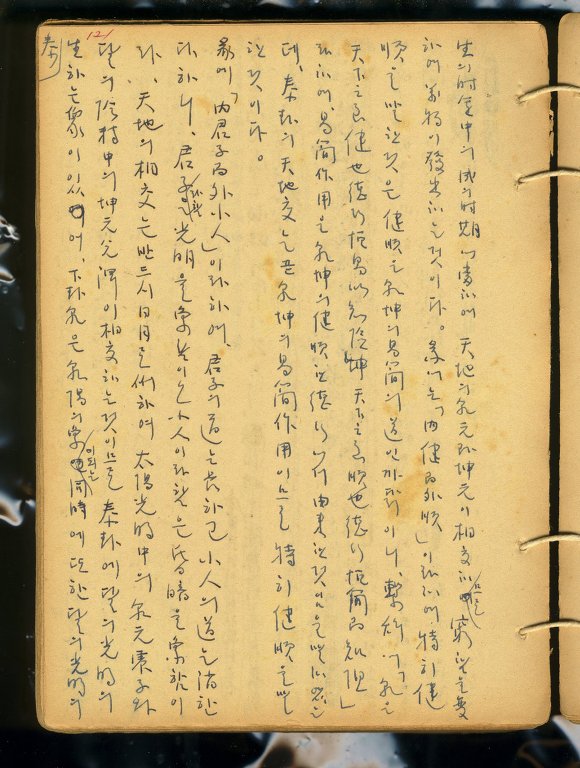 泰
121
生의 時運中의 成의 時期에 當하여 天地의 乾元과 坤元이 相交하므로 窮한것을 變
하여 萬物이 發生하는 것이다。彖에는「內健而外順」이라하여 特히 健
順을 말한것은 健順은 乾坤의 易簡의 道인 까닭이니, 繫辭에「乾은
天下之至健也 德行恒易以知險 坤 天下之至順也 德行恒簡以知阻」
라하여 易簡作用은 乾坤의 健順한 德行에서 由來한것임을 말하였는
데, 泰卦의 天地交는 곧 乾坤의 易簡作用이므로 特히 健順을 말
한것이다。
彖에「內君子而外小人」이라하여, 君子의 道는 長하고 小人의 道는 消한
다하니, 君子라함은 光明을 象함이오 小人이라함은 昏暗을 象함이
라, 天地의 相交는 반드시 日月로써하여 太陽光明中의 乾元素子와
달의 陰精中의 坤元 이 相交하는것이므로 泰卦에 달의 光明의
生하는 象이 있어, 下卦乾은 乾陽의 象이되는 同時에 또한 달의 光明의